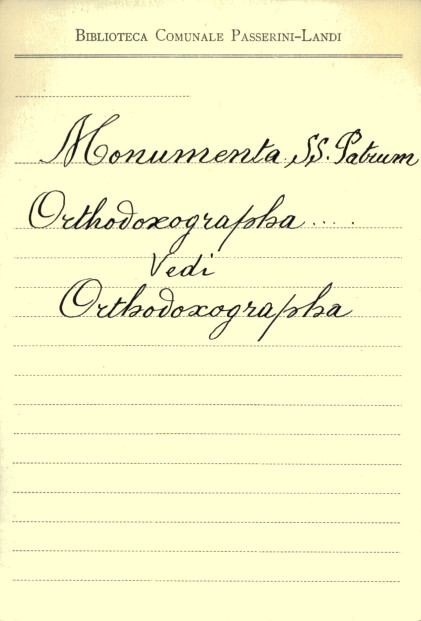 Biblioteca Comunale Passerini-Landi
Monumenta SS. Patrum
Orthodoxographa ....
Vedi
Orthodoxographa